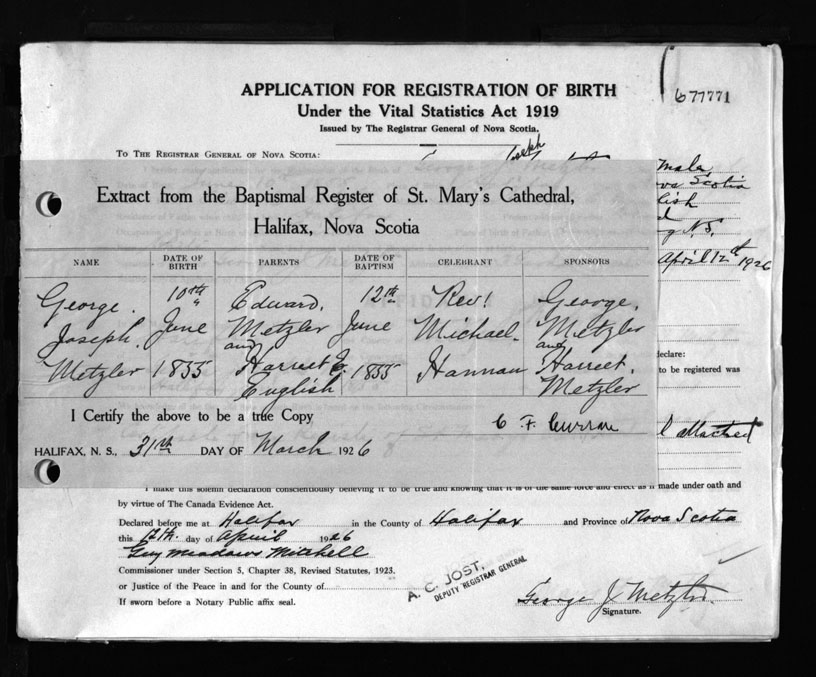 APPLICATION FOR REGISTRATION OF BIRTH
Under the Vital Statistics Act 1919
Issued by The Registrar General of Nova Scotia.
677771
TO THE REGISTRAR GENERAL OF NOVA SCOTIA:
Joseph
male
Scotia
N.S.
April 12th 1926
Extract from the Baptismal Register of St. Mary's Cathedral,
Halifax, Nova Scotia
NAME DATE OF BIRTH PARENTS DATE OF BAPTISM CELEBRANT SPONSORS
George. 10th " Edward. 12th Rev! George.
Joseph. June Metzler and June Michael. Metzler and
Metzler 1855 Harriet E. English 1855 Hannan Harriet. Metzler
declare:
to be registered was
I Certify the above to be a true Copy
C. F. Curran
attached
HALIFAX, N. S., 31th DAY OF March 1926
I make this solemn declaration conscientiously believing it to be true and knowing that it is of the same force and effect as if made under oath and
by virtue of The Canada Evidence Act.
Declared before me at Halifax in the County of Halifax and Province of Nova Scotia
this 12th. day of April 1926
Guy Meadows Mitchell
Commissioner under Section 5, Chapter 38, Revised Statutes, 1923.
or Justice of the Peace in and for the County of
If sworn before a Notary Public affix seal.
A. C. JOST,
DEPUTY REGISTRAR GENERAL
George J Metzler.
Signature.